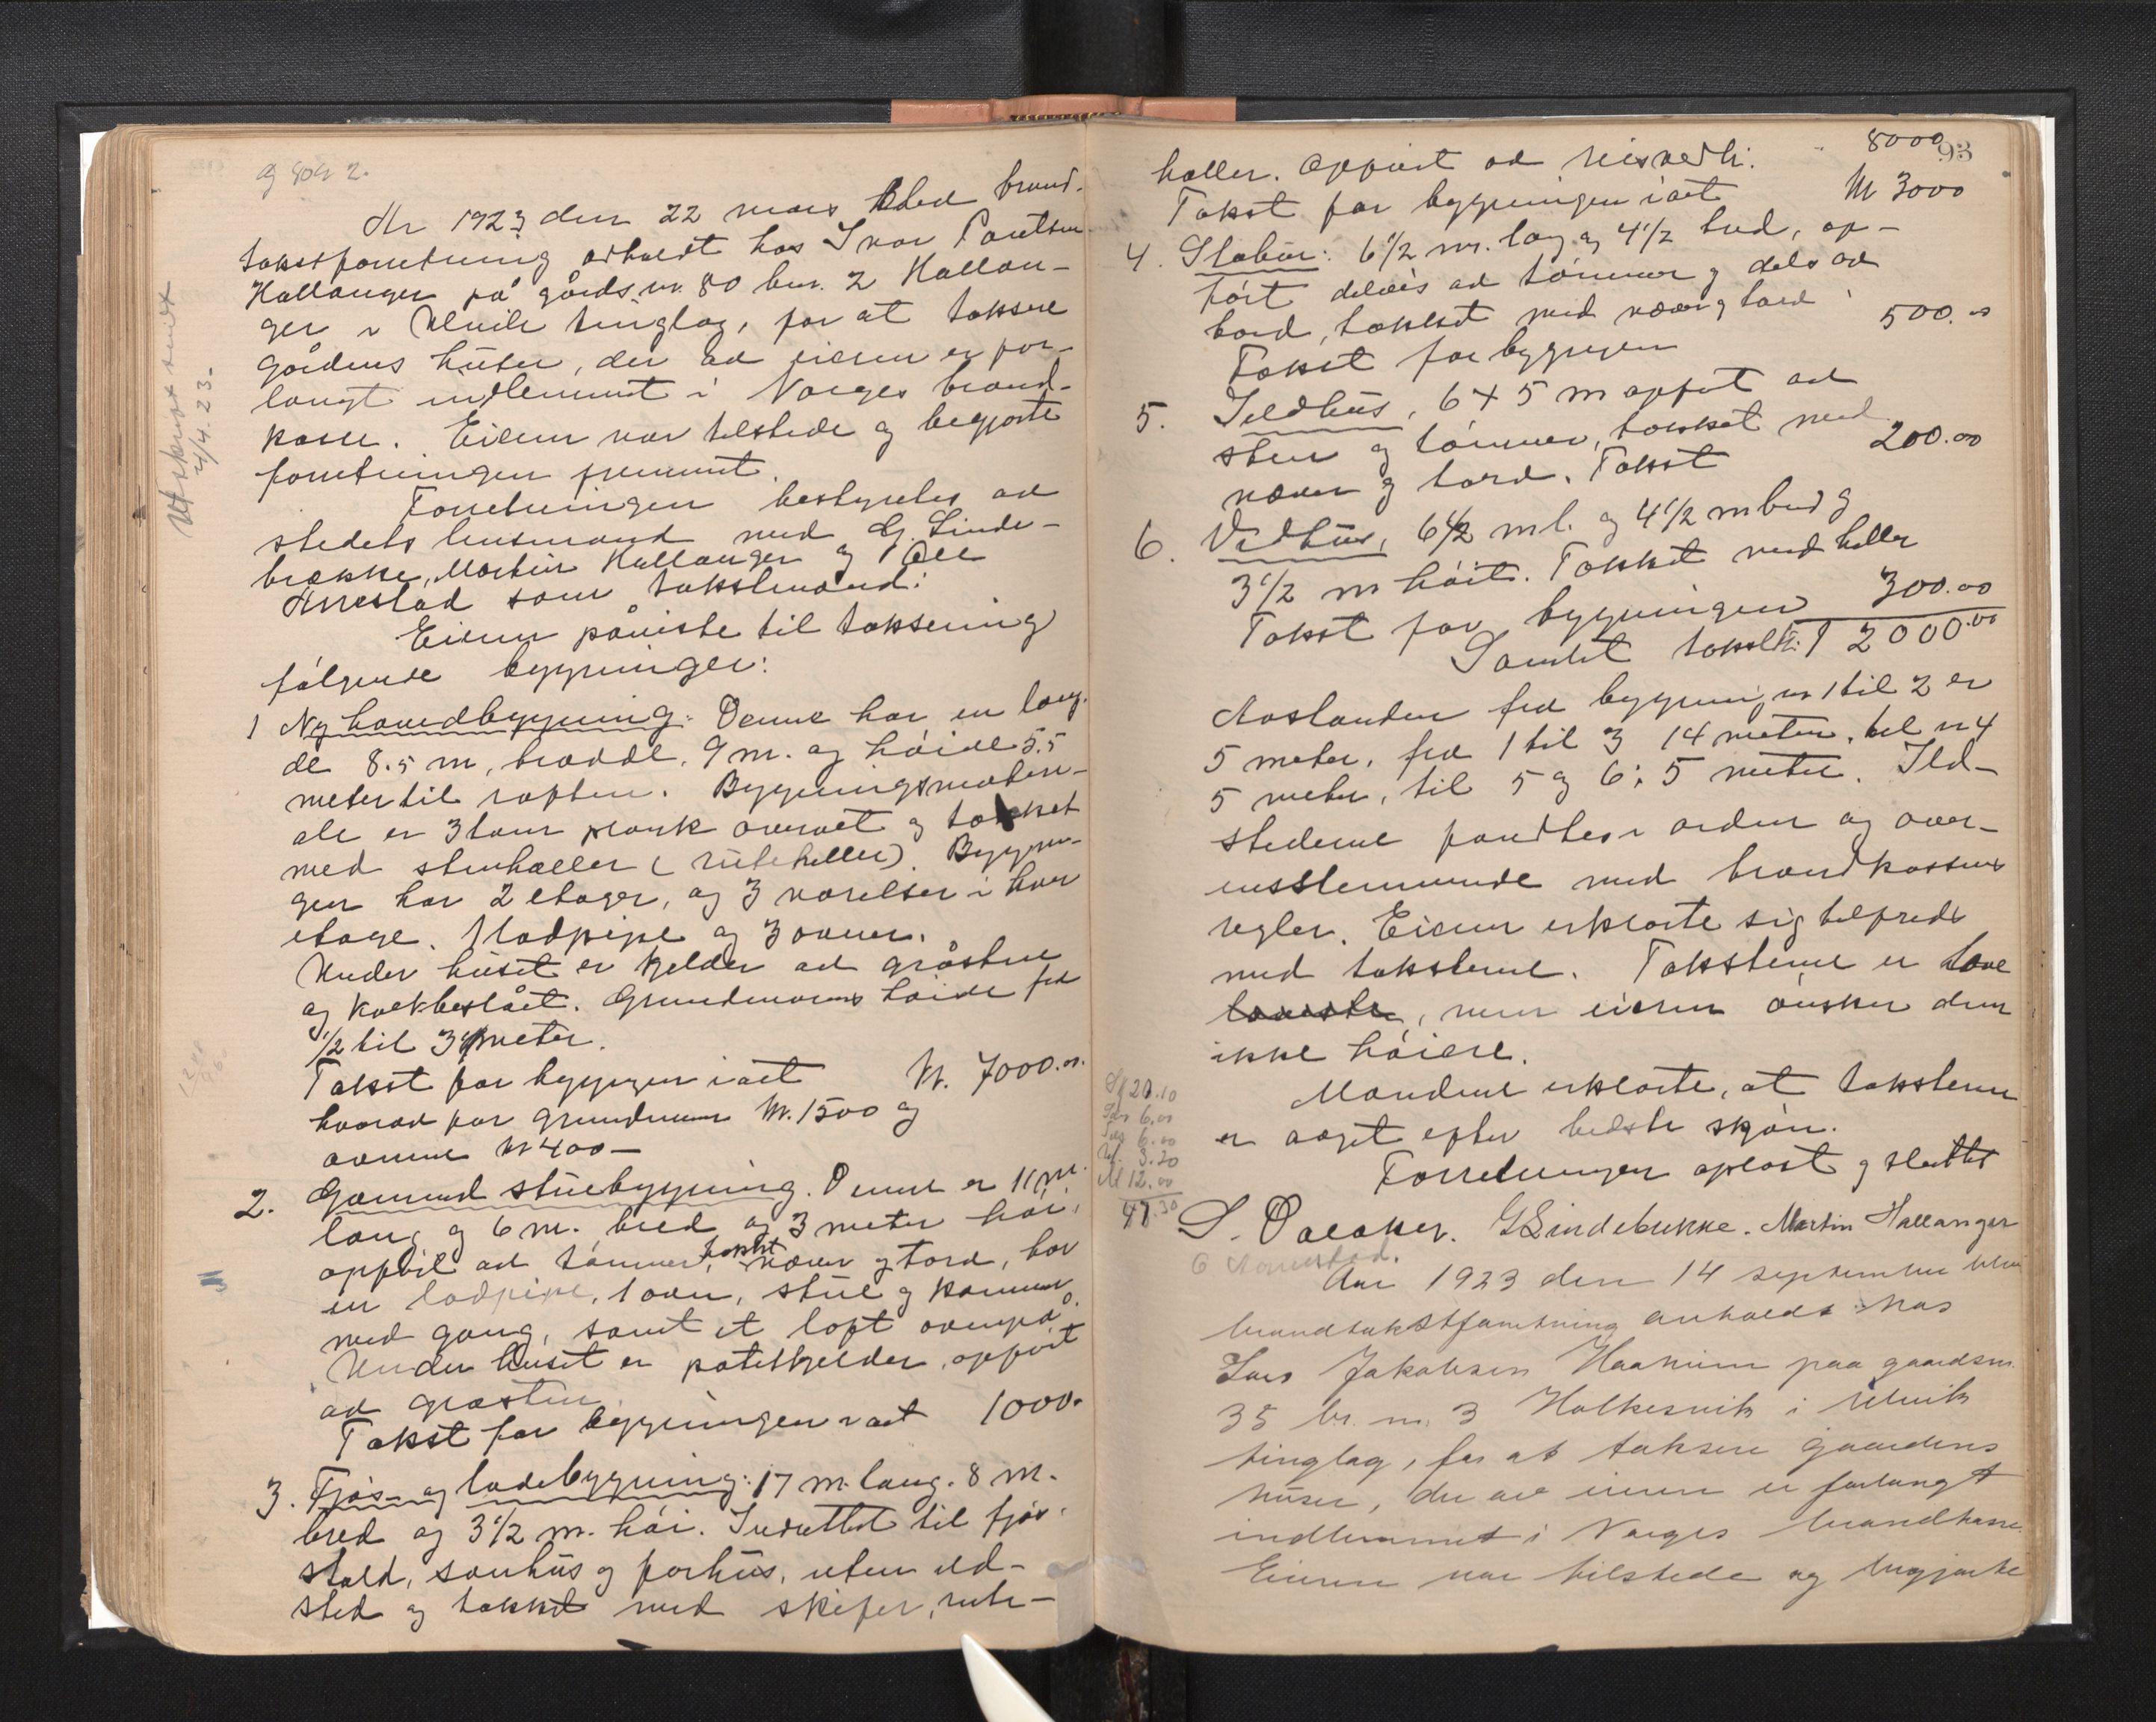 g 80 br 2.
Utskrift sendt
4/4.23.
Aar 1923 den 22 mars blev brand-
takstforretning avholdt hos Ivar Poulsen
Hallanger på gårds nr. 80 bnr. 2 Hallan-
ger i Ulvik tinglag, for at taksere
gårdens huser, der av eieren er for-
langt indlemmet i Norges brand-
kasse. Eieren var tilstede og begjærte
forretningen fremmet.
Forretningen bestyredes av
stedets lensmand med G. Linde-
brække, Martin Hallanger og Ole
som takstmænd.
Eieren påviste til taksering
følgende bygninger:
1 Ny hovedbygning: Denne har en læng-
de 8.5 m, bredde, 9 m. og høide 5.5
meter til raften. Bygningsmateri-
ale er 3 tom plank overalt og tækket
med stenheller (ruteheller). Bygnin-
gen har 2 etager, og 3 værelser i hver
etage. 1 lodpipe og 3 ovner.
Under huset er kjelder av gråsten
og kalkbeslået. Grundmurens høide fra
1/2 til 3 meter.
Takst for bygningen i alt Kr. 7000.00
hvorav for grundmuren Kr. 1500 og
ovnene kr 400 —
2. Gammel stuebygning. Denne er 11 m.
lang og 6 m. bred og 3 meter høi,
opført av tømmer, tækket næver og torv, har
en lodpipe, 1 oven, stue og kammer
med gang, samt et loft ovenpå.
Under huset er potetkjelder, opført
av gråsten.
Takst for bygningen i alt 1000.
3. Fjøs- og ladebygning: 17 m. lang. 8 m.
bred og 3 1/2 m. høi. Indrettet til fjøs,
stald, sauhus og forhus, uten ild-
sted og tækket med skifer, rute-
93
8000
heller. Opført av reisverk.
Takst for bygningen i alt Kr 3000
4. Stabur: 6 1/2 m. lang og 4 1/2 bred, op-
ført delvis av tømmer og dels av
bord, tækket med næver og torv
Takst for bygningen 500.00
5. Ildhus, 6 x 5 m opført av
sten og tømmer, tækket med
næver og torv. Takst 200.00
6. Vedhus, 6 1/2 m l. og 4 1/2 m bred og
3 1/2 m høit. Tækket med heller
Takst for bygningen 300.00
Samlet takst kr. 12000.00
Avstanden fra bygning nr 1 til 2 er
5 meter, fra 1 til 3 14 meter, til nr 4
5 meter, til 5 og 6: 5 meter. Ild-
stederne fandtes i orden og over-
ensstemmende med brandkassens
regler. Eieren erklærte sig tilfreds
med taksterne. Taksterne er lave
laveste, men eieren ønsker dem
ikke høiere.
Mændene erklærte, at taksterne
er avgit efter bedste skjøn.
Forretningen oplæst og sluttet
20.10
6.00
6.00
3.20
12.00
47.30
G Lindebrekke. Martin Hallanger
Aar 1923 den 14 september blev
brandtakstforretning avholdt hos
Lars Jakobsen Haaheim paa gaardsnr.
35 br. nr. 3 Holkesvik i Ulvik
tinglag, for at taksere gaardens
huser, der av eieren er forlangt
indlemmet i Norges brandkasse.
Eieren var tilstede og begjærte